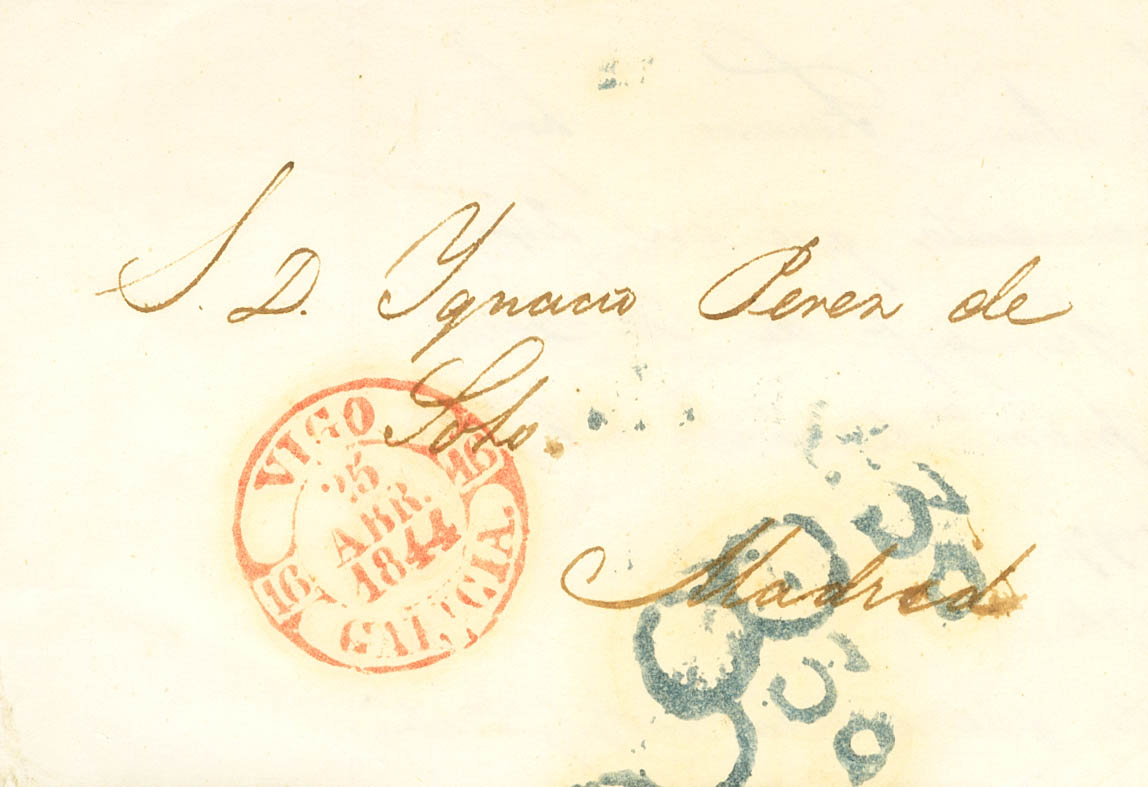 S. D. Ygnacio Perez de
Soto.
VIGO
16
25
ABR.
1844
16
GALICIA.
Madrid